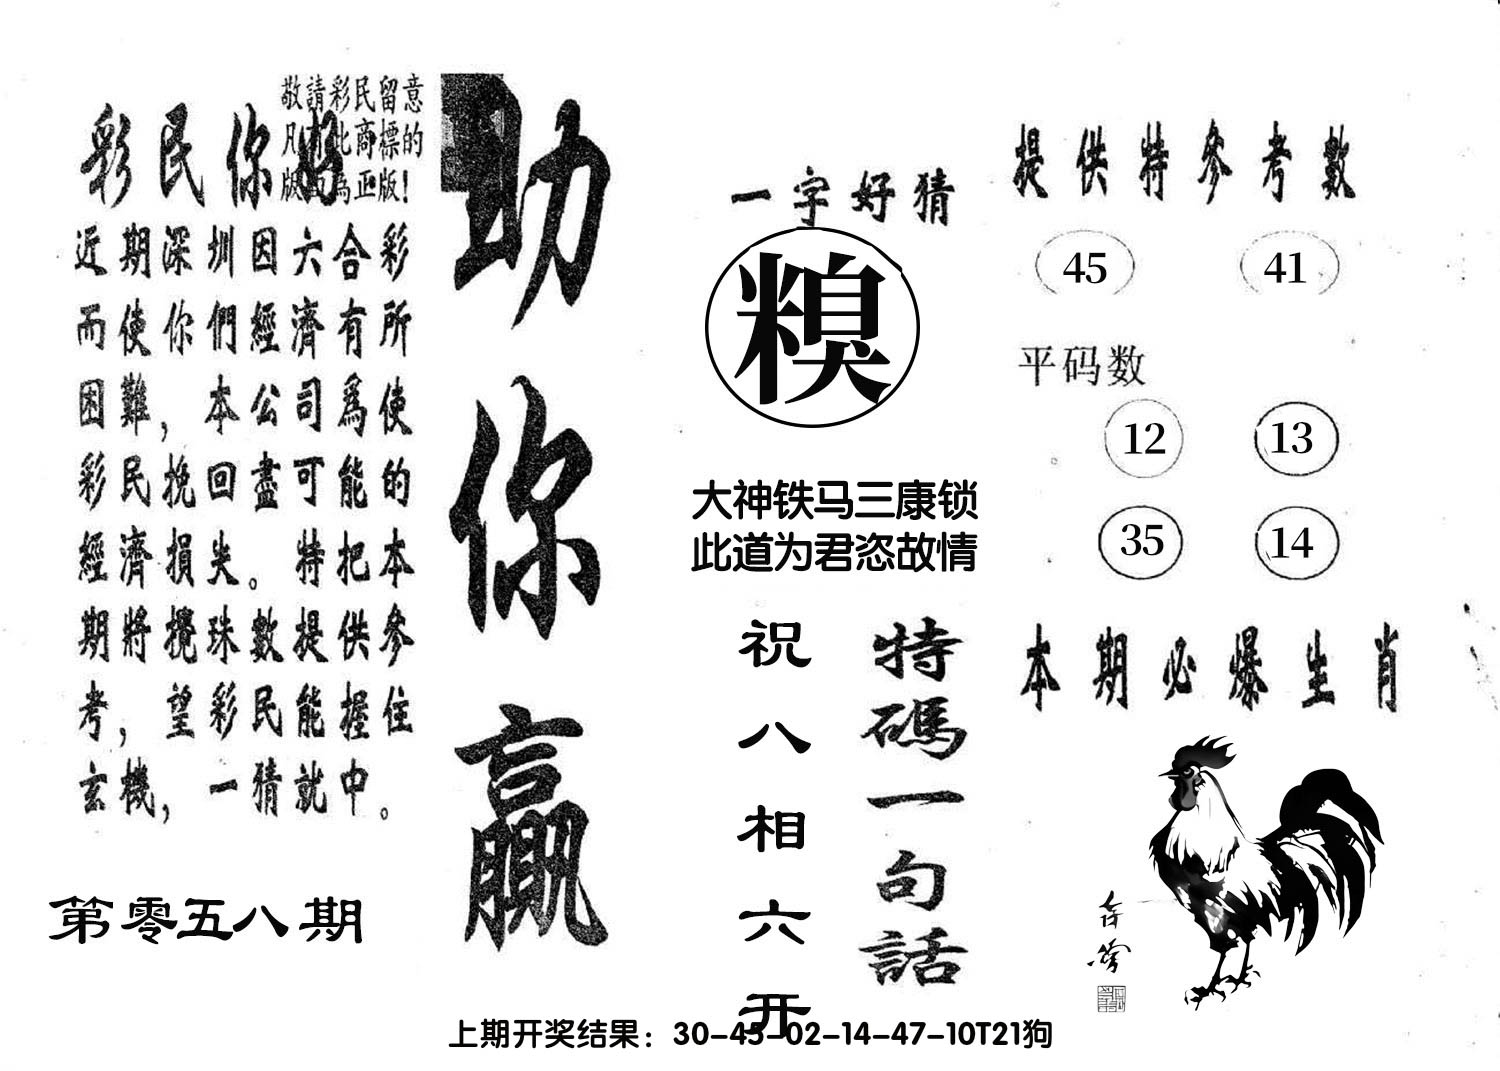 敬請彩民留意
凡有此商標的
版面為正版！
彩民你好
近期深圳因六合彩
而使你們經濟有所
困難，本公司爲使
彩民挽回盡可能的
經濟損失。特把本
期將攪珠數提供參
考，望彩民能握住
玄機，一猜就中。
第零五八期
助你贏
一字好猜
糗
大神铁马三康锁
此道为君恣故情
特碼一句話
祝八相六开
提供特參考數
45 41
平码数
12 13
35 14
本期必爆生肖
上期开奖结果：30-45-02-14-47-10T21狗